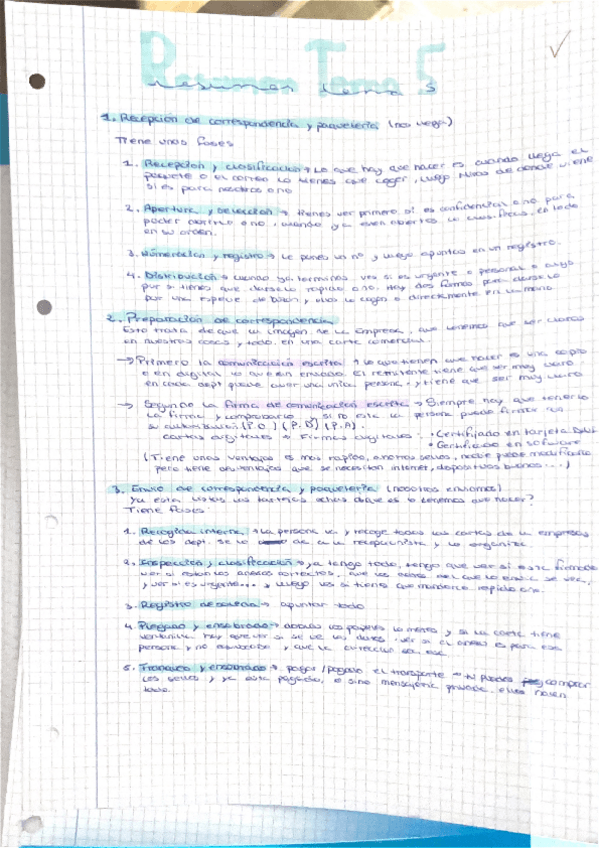 Resumen Tema 5
1. Recepción de correspondencia y paquetería (nos llega)
Tiene unas fases
1. Recepción y clasificación → Lo que hay que hacer es cuando llega el
paquete o el correo lo tienes que coger, luego miras de donde viene
si es para nosotros o no
2. Apertura y selección → tienes ver primero si es confidencial o no para
poder abrirlo o no, cuando ya esten abiertos lo clasificas, es todo
en su orden.
3. Numeración y registro → Le pones un nº y luego apuntas en un registro.
4. Distribución → cuando ya terminas ves si es urgente o personal o algo
por si tienes que darselo rapido o no. Hay dos formas para darselo
por una especie de buzon y ellos lo cogen o directamente en la mano.
2. Preparación de correspondencia
Esto trata de que la imagen de la Empresa, que tenemos que ser claros
en nuestras cosas y todo. en una carta comercial.
→ Primero la comunicación escrita → lo que tienen que hacer es una copia
o en digital lo que han enviado. El remitente tiene que ser muy claro
en cada dept puede haber una unica persona, y tiene que ser muy claro
→ Segundo la firma de comunicación escrita → Siempre hay que tenerlo
la firma y comprobarlo y si no esta la persona puede firmar
su (P.O.) (P.A).
cartas digitales → Firmas digitales: · Certificado en tarjeta
· Certificado en software
(Tiene unas ventajas es mas rapido, ahorras sellos, nadie puede modificarlo
pero tiene desventajas que se necesitan internet, dispositivos buenos...)
3. Envio de correspondencia y paquetería (nosotros enviamos)
Ya esta listos las cartas que es lo tenemos que hacer?
Tiene fases:
1. Recogida interna → La persona va y recoge todas las cartas de la empresas
de los dept. se lo da a la recepcionista y lo organiza
2. Inspección y clasificación → ya tengo todo, tengo que ver si esta firmado
ver si estan los anexos correctos, que los datos del que lo envia se vea,
y ver si es urgente, y luego ves si tiene que mandarlo rapido o no.
3. Registro de salida → apuntar todo
4. Plegado y ensobrado → doblas los papeles lo metes y si la carta tiene
ventanilla hay que ver si se ve los datos, ver si el anexo es para esa
persona y no equivocarse y que la direccion sea esa.
5. Franqueo y → pagar/pagado el transporte → tu puedes comprar
los sellos y ya esta pagado, o sino mensajeria privada, ellos hacen
todo.